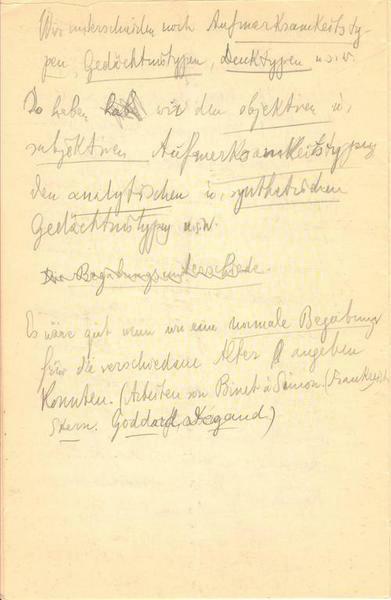 Wir unterscheiden noch Aufmerksamkeitsty-
pen, Gedächtnistypen, Denktypen u.s.w.
So haben wir den objektiven u,
subjektiven Aufmerksamkeitstypen
den analytischen u, synthetischen
Gedächtnistypen usw.
Die Begabungsunterschiede.
Es wäre gut wenn wir eine normale Begabung
für die verschiedene Alter angeben
konnten. (Arbeiten von Binet à Simon. (Frankreich
Stern.